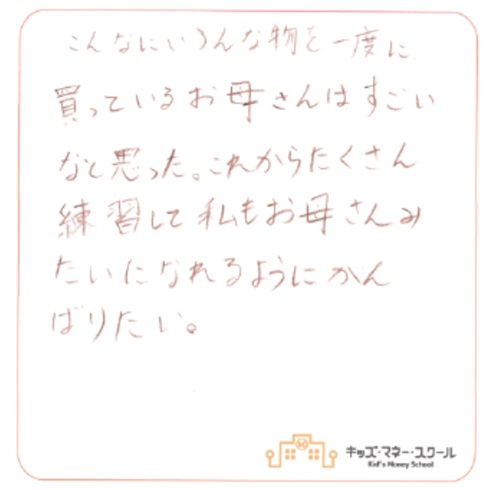 こんなにいろんな物を一度に
買っているお母さんはすごい
なと思った。これからたくさん
練習して私もお母さんみ
たいになれるようにがん
ばりたい。
キッズ・マネー・スクール
Kid's Money School